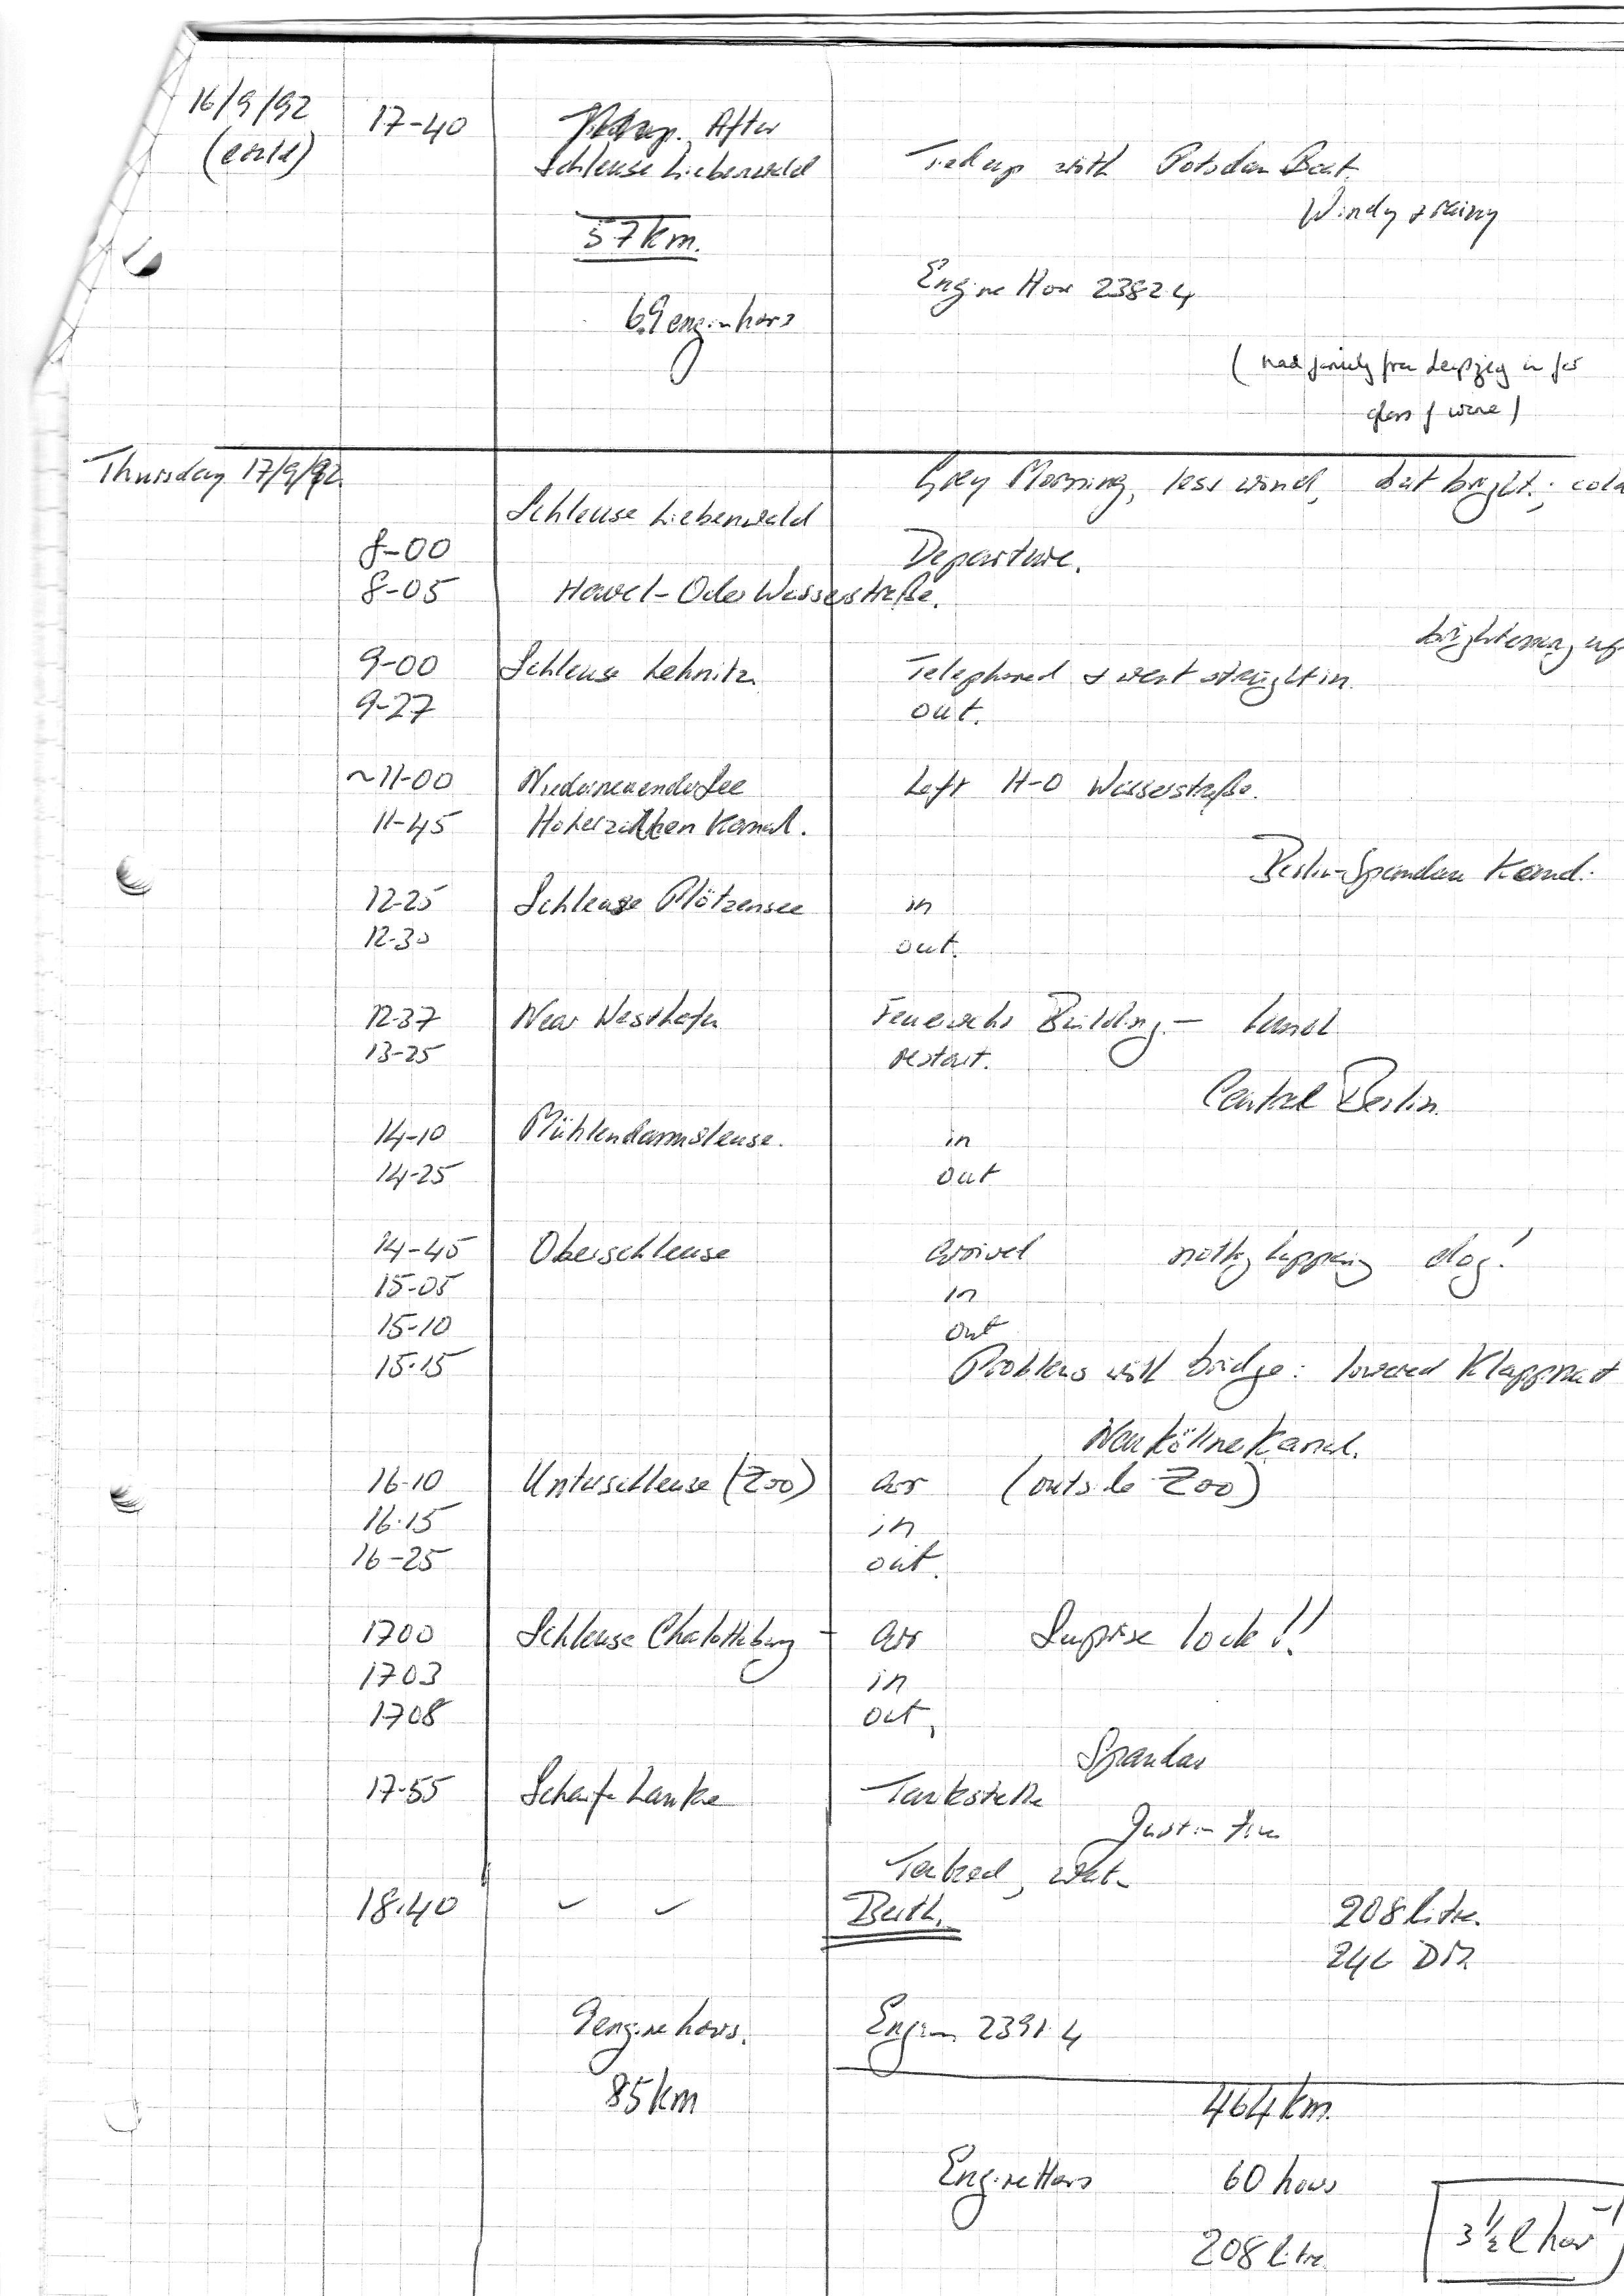 16/9/92 17-40 After
(contd) Schleuse Liebenwald Tied up with Potsdam Boat.
Windy & rainy
57km.
Engine Hour 2382.4
6.9 engine hours
(had family from Leipzig in for
glass of wine)
Thursday 17/9/92. Grey Morning, less wind, but bright; cold
Schleuse Liebenwald
8-00 Departure.
8-05 Havel-Oder Wasserstraße.
brightening up
9-00 Schleuse Lehnitz. Telephoned & went straight in.
9-27 out.
~11-00 Niederneuendorfsee Left H-O Wasserstraße.
11-45 Hohenzollen Kanal.
Berlin-Spandau Kanal.
12-25 Schleuse Plötzensee in
12-30 out.
12-37 Near Westhafen Building - lunch
13-25 restart.
Central Berlin
14-10 Mühlendammsleuse. in
14-25 out
14-45 Oberschleuse arrived nothing happening dog!
15-05 in
15-10 out
15-15 Problems with bridge: lowered Klappmast
Neuköllner Kanal.
16-10 Unterschleuse (Zoo) arr (outside Zoo)
16-15 in
16-25 out.
1700 Schleuse Charlottenburg - arr Suprise lock!!
1703 in
1708 out,
Spandau
17-55 Scharfe Lanke Tankstelle
Just in time
Tanked,
18.40 Berth. 208 litre.
246 DM
9 engine hours. Engine 2391.4
85km 464km.
Engine Hours 60 hours
208 litre 3½ l hour⁻¹